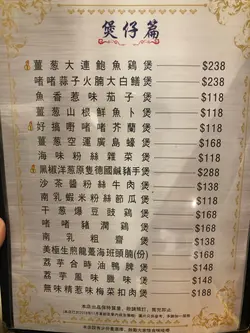 煲仔篇
薑葱大連鮑魚鷄煲 $238
啫啫蒜子火腩大白鱔煲 $238
魚香惹味茄子煲 $118
薑葱山根鮮魚卜煲 $118
好搞嘢啫啫芥蘭煲 $118
薑葱空運廣島蠔煲 $168
海味粉絲雜菜煲 $118
黑椒洋葱原隻德國鹹豬手煲 $288
沙茶醬粉絲牛肉煲 $138
南乳蝦米粉絲節瓜煲 $118
干葱爆豆豉鷄煲 $168
啫啫豬潤鷄煲 $168
南乳粗齋煲 $138
美極生煎龍躉海班頭腩(份) $168
荔芋合時油鴨脾煲 $148
荔芋風味臘味煲 $148
無味精惹味梅菜扣肉煲 $188